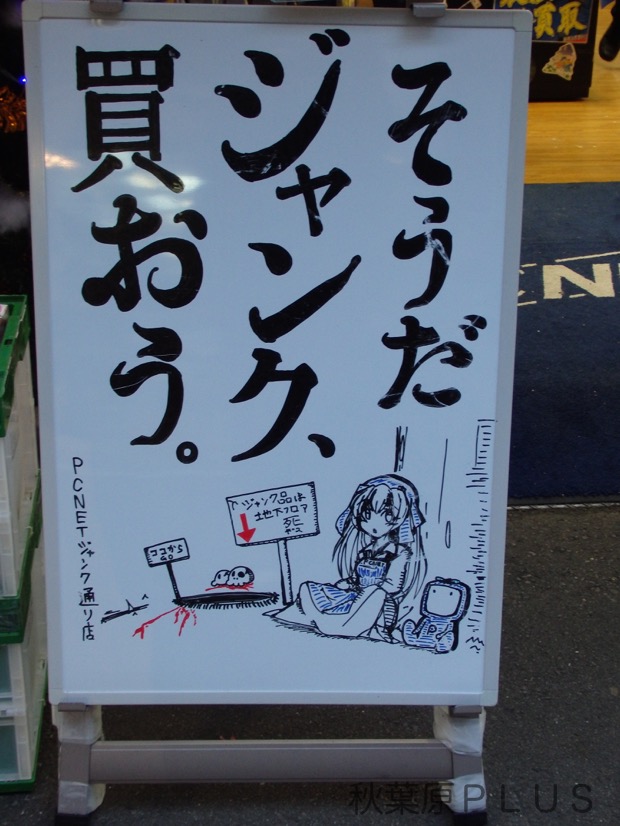 そうだ
ジャンク、
買おう。
PCNETジャンク通り店
ジャンク品は
地下フロア
ココから
GO
買取
秋葉原PLUS